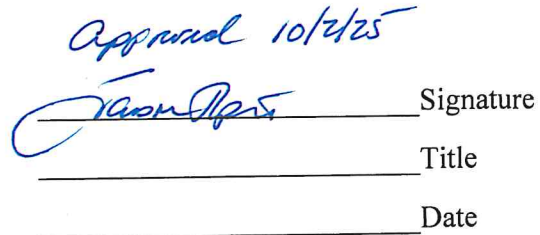 Approved 10/2/25
Signature
Title
Date